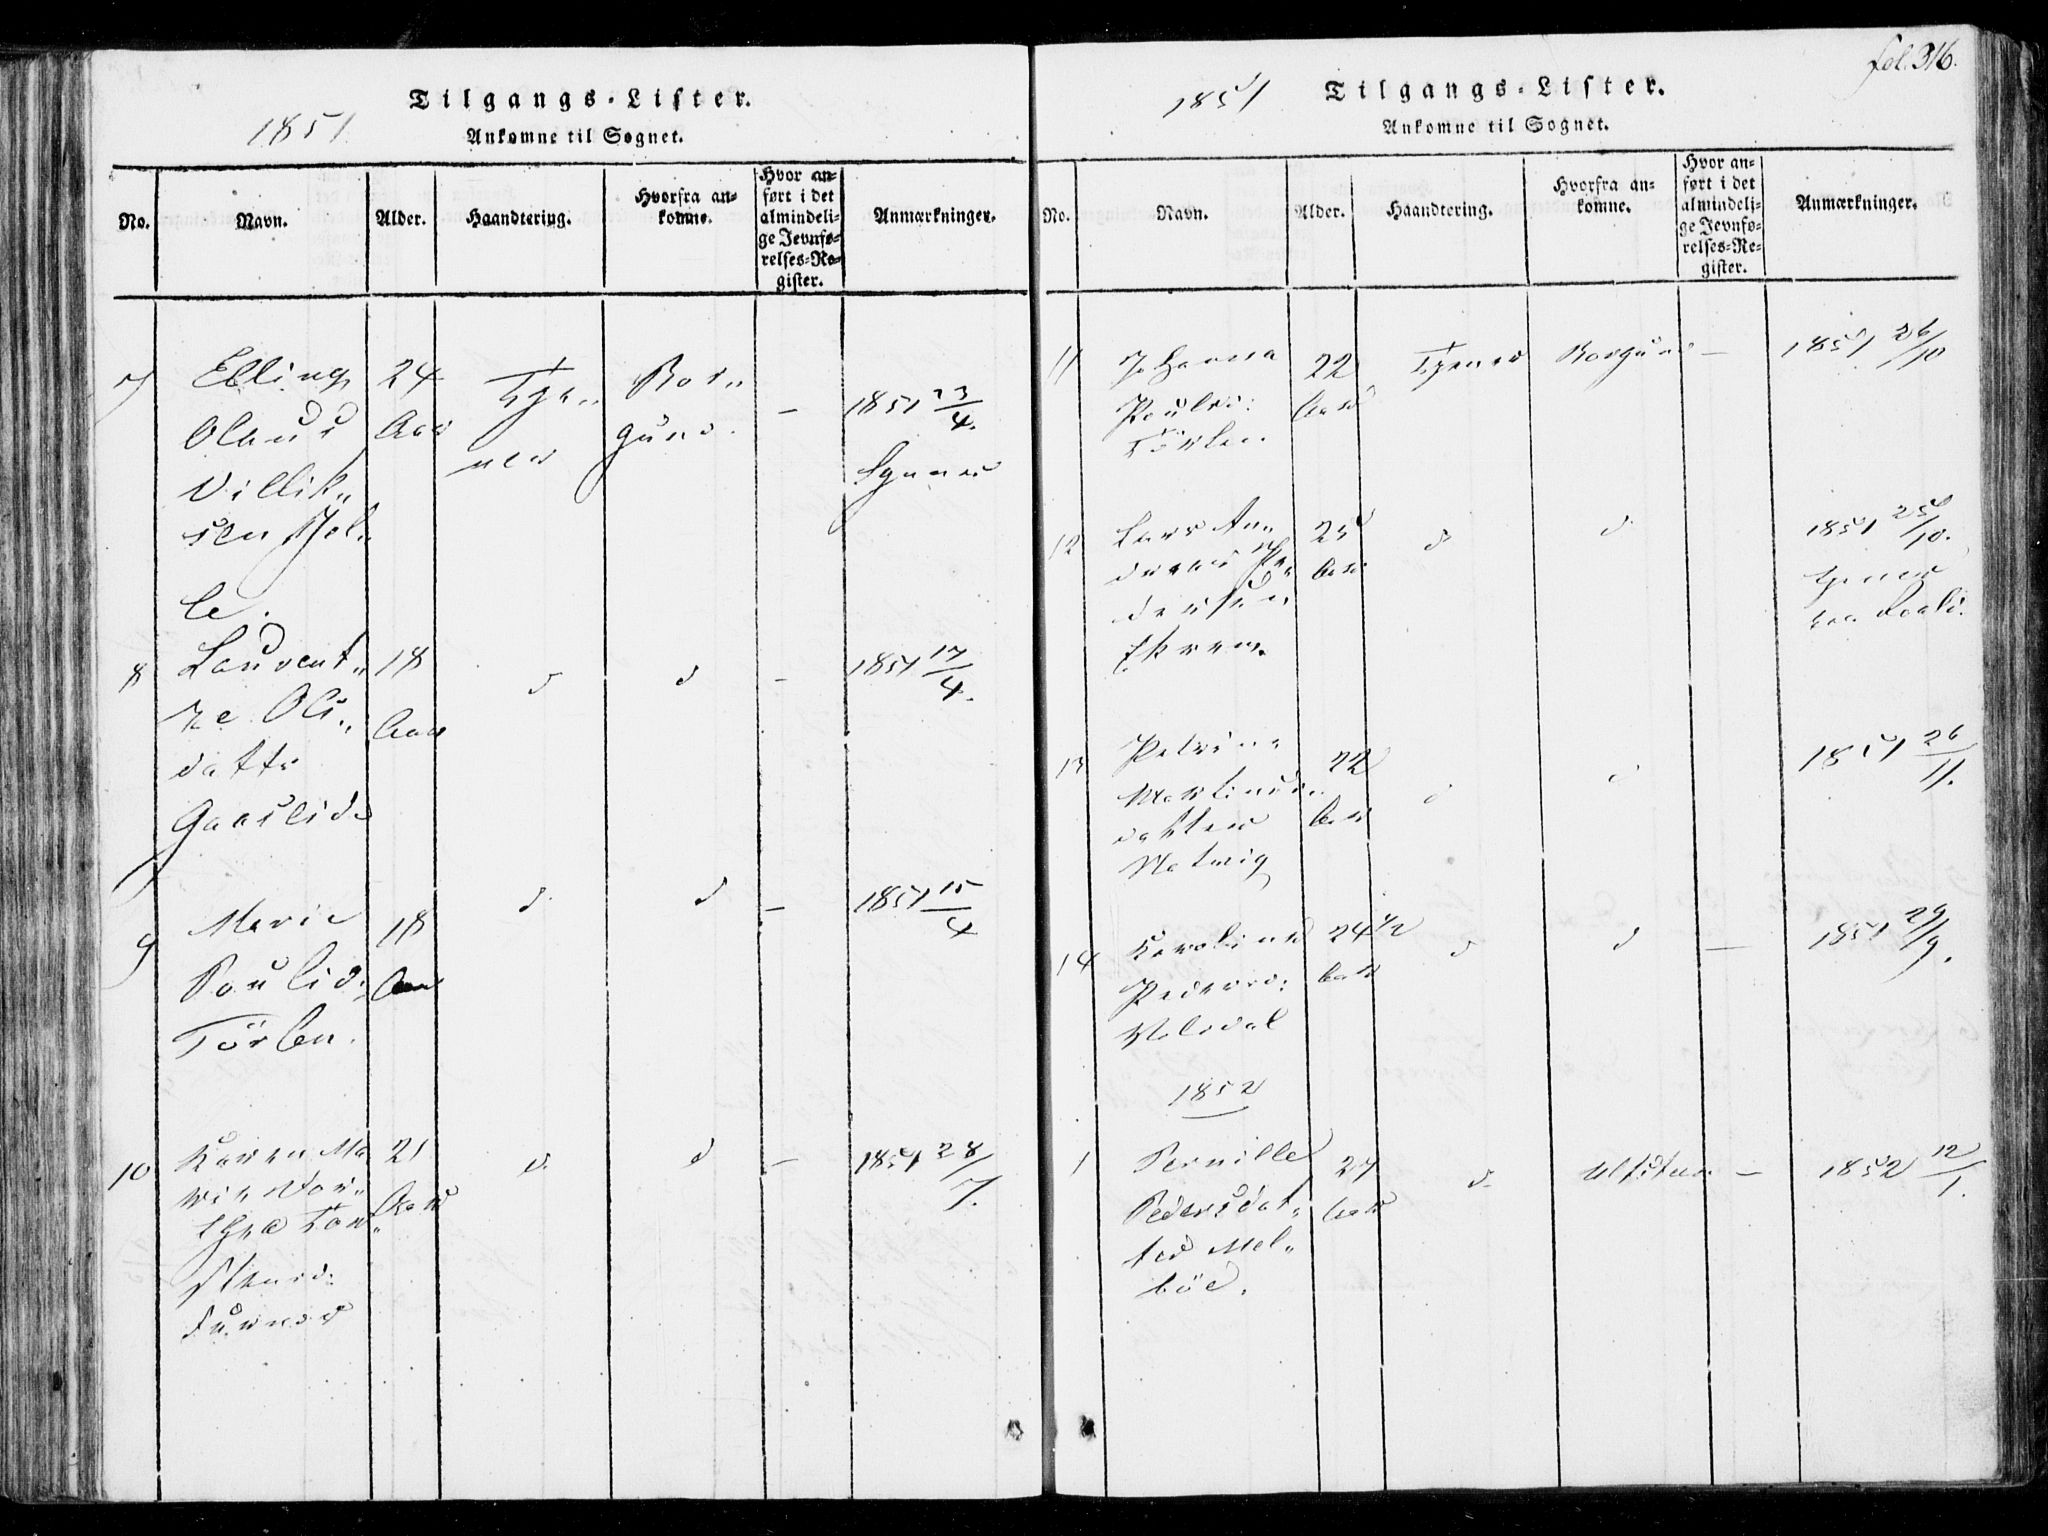 Tilgangs-Lister.
1851.
Ankomne til Sognet.
No.
Navn.
Alder.
Haandtering.
Hvorfra an-
komne.
Hvor an-
ført i det
almindeli-
ge Jevnfø-
relses-Re-
gister.
Anmærkninger.
7
Elling
Olaus
Villik„
sen
le.
24
Aar
Tje„
ner
Bor„
gund.
–
1851 23/4.
8
Laurent„
ze Ols„
datts
Gaaslid
18
Aar
d
d
–
1851 17/4.
9
Marie
Poulsd.
Törlen.
18
Aar
d.
d
–
1851 15/4
10
Karen Ma
rie Dor„
thea Tor„
stensd.
21
Aar
d.
d
–
1851 28/7.
fol. 316.
Tilgangs-Lister.
1851
Ankomne til Sognet.
No.
Navn.
Alder.
Haandtering.
Hvorfra an-
komne.
Hvor an-
ført i det
almindeli-
ge Jevnfø-
relses-Re-
gister.
Anmærkninger.
11
Johanna
Pouls:
Törlen
22
Aar
Tjener
Borgund
–
1851 26/10
12
Lars An„
dreas Pe„
dersen
Ekrem.
25
Aar
d
d
1851 25/10.
13
Petrine
Martinus„
datter
Hatvig
22
Aar
d
d
1851 26/11.
14
Karoline
Pedersd:
24 1/2
Aar
d
d
–
1851 29/9.
1852
1
Pernille
Pedersdat„
ter Mel„
böe.
27
Aar
d.
Ulfsteen
–
1852 12/1.